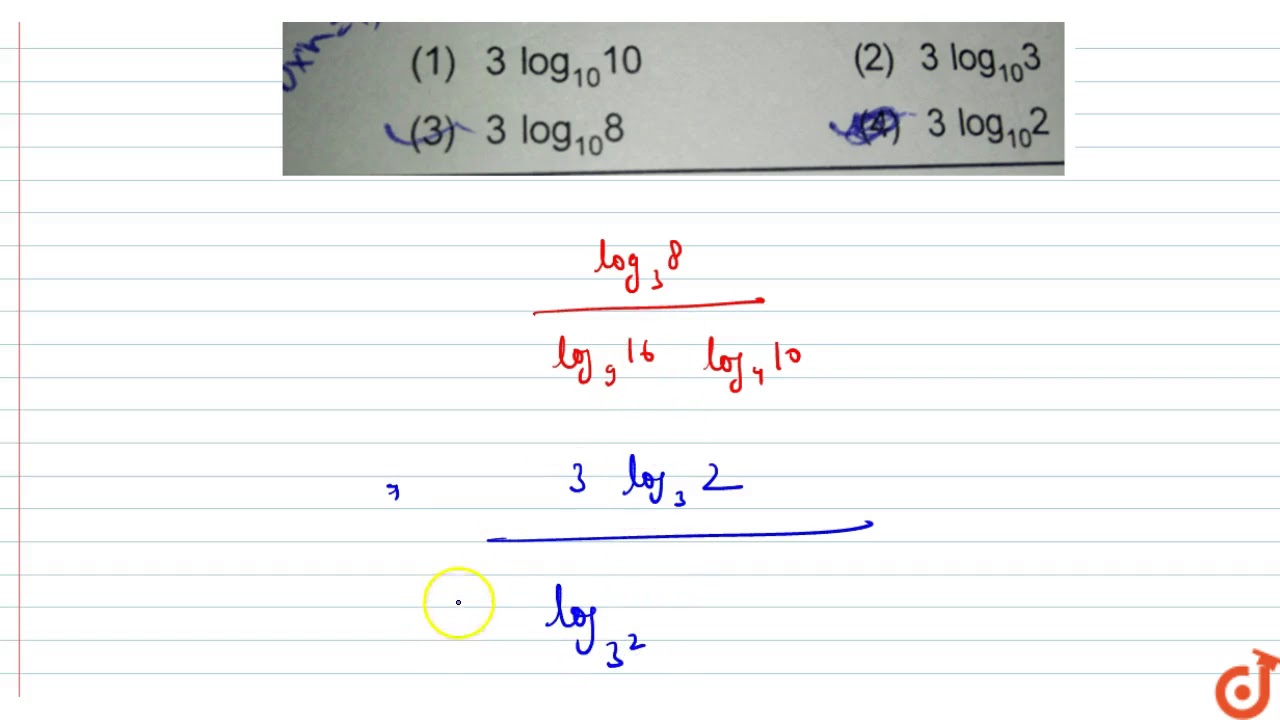 (1) 3 log₁₀10 (2) 3 log₁₀3
(3) 3 log₁₀8 (4) 3 log₁₀2
log₃ 8
log₉ 16 log₄ 10
3 log₃ 2
log₃²